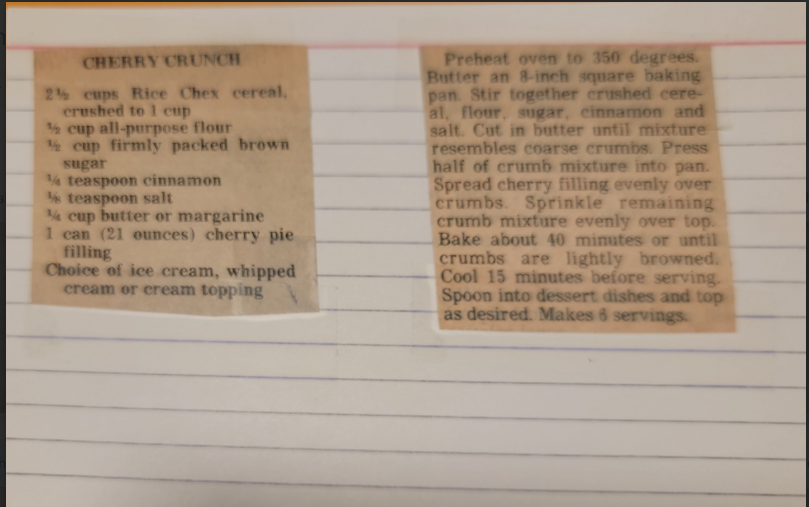 CHERRY CRUNCH
2½ cups Rice Chex cereal,
crushed to 1 cup
½ cup all-purpose flour
½ cup firmly packed brown
sugar
¼ teaspoon cinnamon
⅛ teaspoon salt
¼ cup butter or margarine
1 can (21 ounces) cherry pie
filling
Choice of ice cream, whipped
cream or cream topping
Preheat oven to 350 degrees.
Butter an 8-inch square baking
pan. Stir together crushed cere-
al, flour, sugar, cinnamon and
salt. Cut in butter until mixture
resembles coarse crumbs. Press
half of crumb mixture into pan.
Spread cherry filling evenly over
crumbs. Sprinkle remaining
crumb mixture evenly over top.
Bake about 40 minutes or until
crumbs are lightly browned.
Cool 15 minutes before serving.
Spoon into dessert dishes and top
as desired. Makes 6 servings.